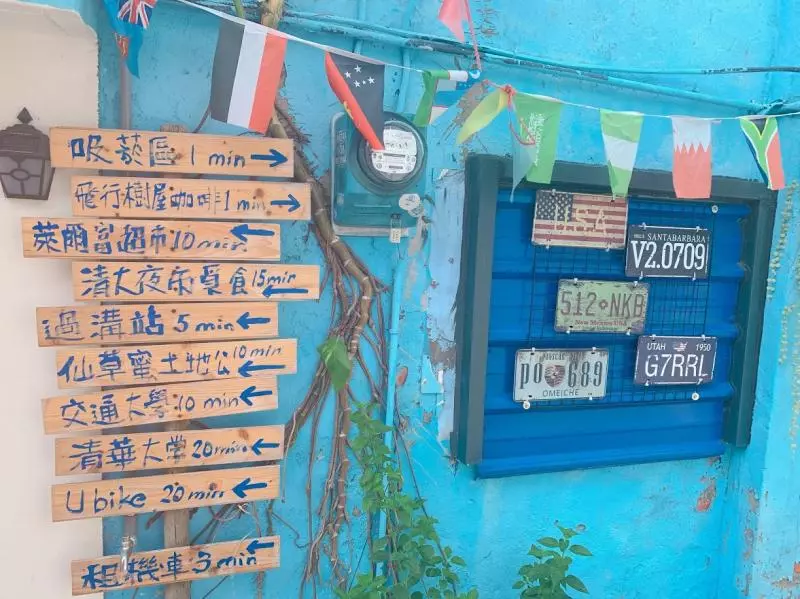 吸菸區 1 min →
飛行樹屋咖啡 1 min →
萊爾富超市 10 min ←
清大夜市覓食 15 min ←
過溝站 5 min ←
仙草蜜土地公 10 min ←
交通大學 10 min ←
清華大學 20 min ←
Ubike 20 min ←
租機車 3 min ←
U.S.A
SANTABARBARA
V2.0709
512◆NKB
New Mexico USA
PO 689
OMEICHE
UTAH 1950
G7RRL